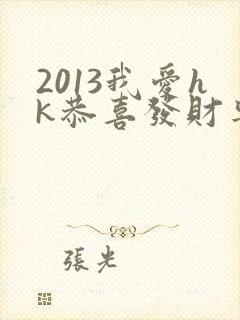 2013我愛h
k恭喜發財
張光